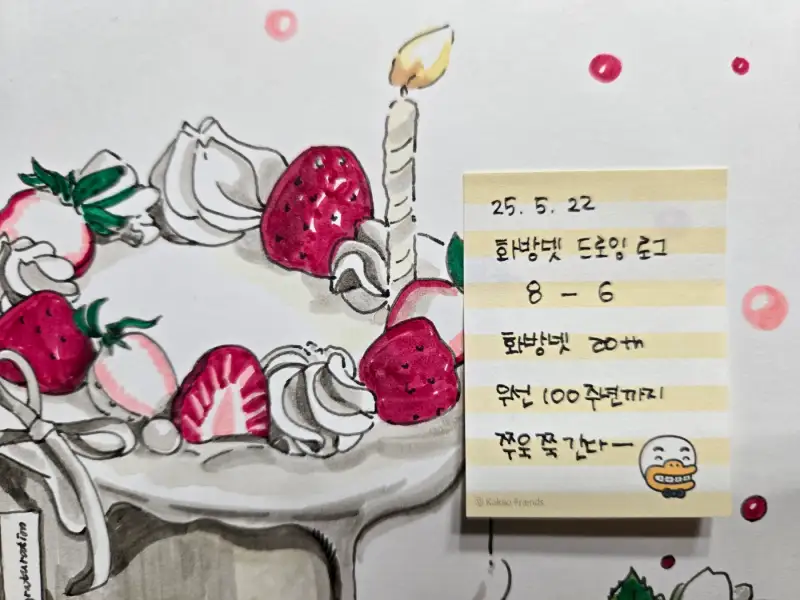 25. 5. 22
화방넷 드로잉 로그
8 - 6
화방넷 20th
우선 100주년까지
쭈욱 쭉 간다ー
© Kakao Friends